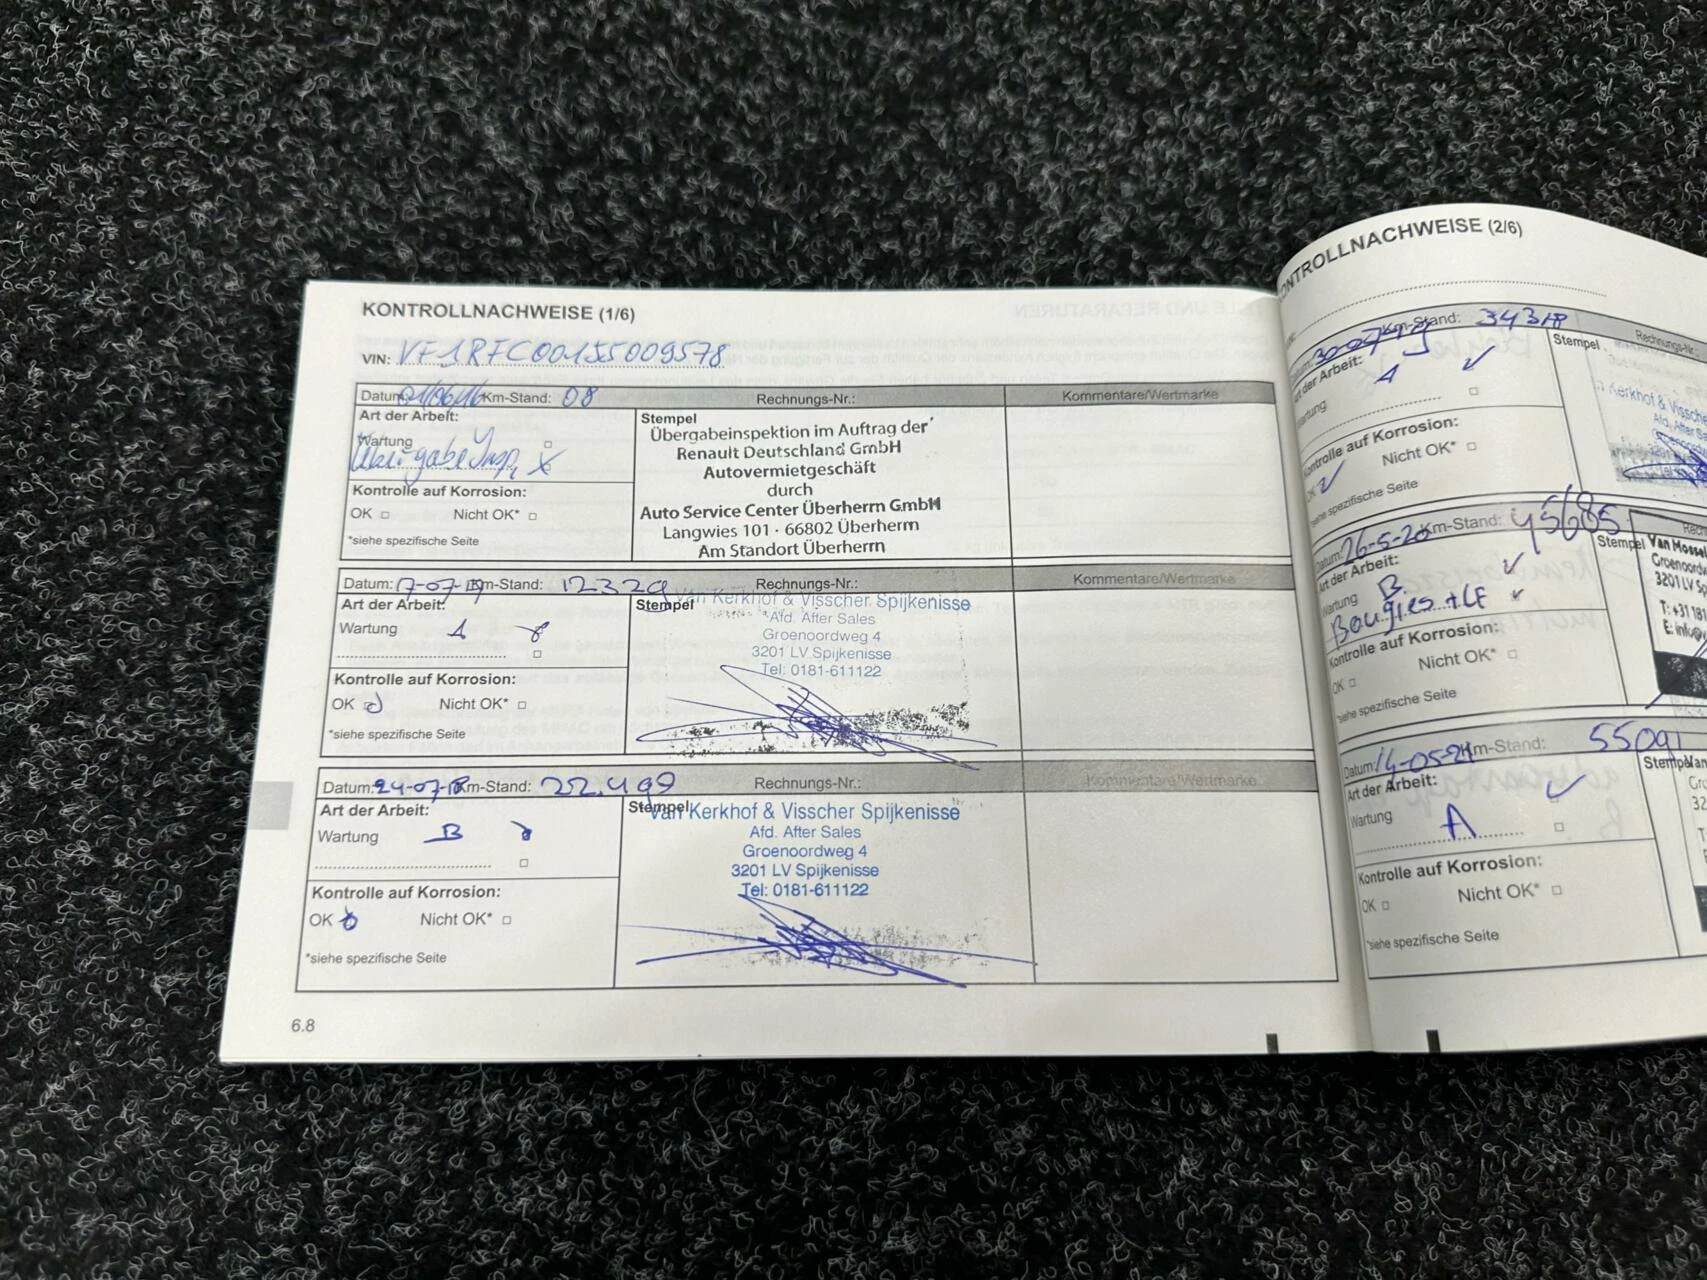 KONTROLLNACHWEISE (1/6)
VIN: VF1RFC00155009578
Datum: 01/06/16 Km-Stand: 08 Rechnungs-Nr.: Kommentare/Wertmarke
Art der Arbeit:
Wartung
Übergabe Insp. X
Kontrolle auf Korrosion:
OK Nicht OK*
*siehe spezifische Seite
Stempel
Übergabeinspektion im Auftrag der
Renault Deutschland GmbH
Autovermietgeschäft
durch
Auto Service Center Überherrn GmbH
Langwies 101 · 66802 Überherrn
Am Standort Überherrn
Datum: 17-07- Km-Stand: 12329 Rechnungs-Nr.: Kommentare/Wertmarke
Art der Arbeit:
Wartung A
Kontrolle auf Korrosion:
OK Nicht OK*
*siehe spezifische Seite
Stempel
Van Kerkhof & Visscher Spijkenisse
Afd. After Sales
Groenoordweg 4
3201 LV Spijkenisse
Tel: 0181-611122
Datum: 24-07-18 Km-Stand: 22.499 Rechnungs-Nr.: Kommentare/Wertmarke
Art der Arbeit:
Wartung B
Kontrolle auf Korrosion:
OK Nicht OK*
*siehe spezifische Seite
Stempel
Van Kerkhof & Visscher Spijkenisse
Afd. After Sales
Groenoordweg 4
3201 LV Spijkenisse
Tel: 0181-611122
6.8
KONTROLLNACHWEISE (2/6)
Km-Stand: 34318 Rechnungs-Nr.
Art der Arbeit:
Wartung A
Kontrolle auf Korrosion:
OK Nicht OK*
*siehe spezifische Seite
Stempel
Kerkhof & Vissche
Afd. After Sa
Groenoord
Datum: 26-5-20 Km-Stand: 45685
Art der Arbeit:
Wartung B
Bougies + LF
Kontrolle auf Korrosion:
OK Nicht OK*
*siehe spezifische Seite
Stempel
Van Mossel
Groenoordw
3201 LV Sp
T: +31 181
E: info@
Datum: 14-05-21 Km-Stand: 55091
Art der Arbeit:
Wartung A
Kontrolle auf Korrosion:
OK Nicht OK*
*siehe spezifische Seite
Stempel